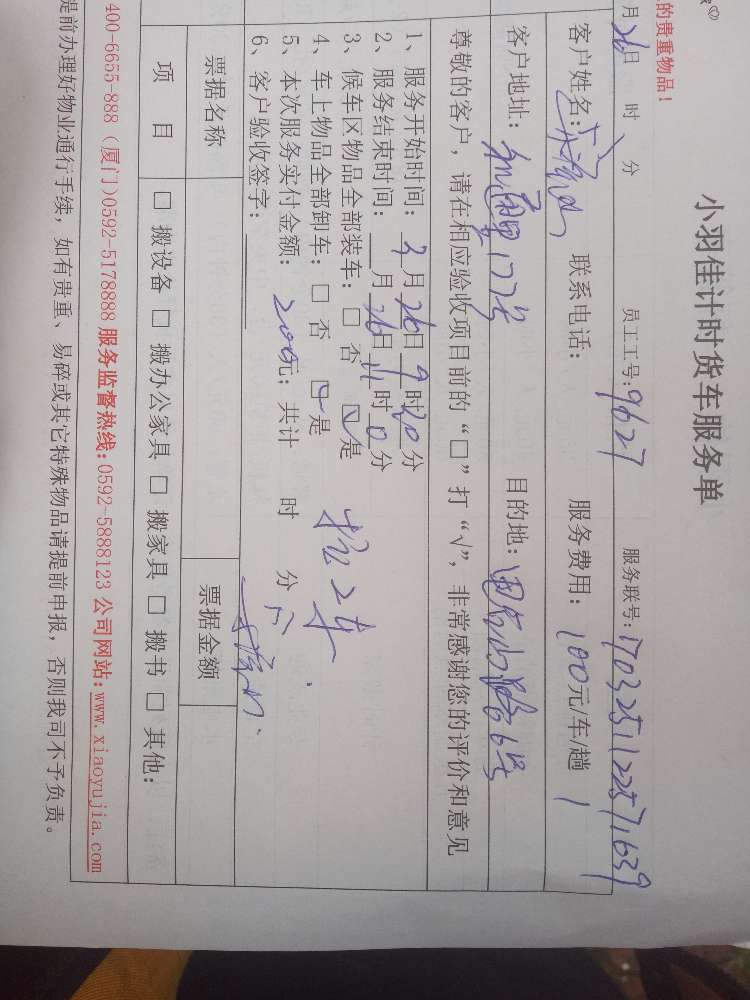 的贵重物品！
小羽佳计时货车服务单
月26日 时 分 员工工号:9627 服务联号:170325112257,1639
客户姓名: 联系电话: 服务费用: 100元/车/趟
客户地址: 177号 目的地: 路6号
尊敬的客户，请在相应验收项目前的“□”打“√”，非常感谢您的评价和意见
1、服务开始时间: 3月26日9时20分
2、服务结束时间: 月26日11时0分
3、候车区物品全部装车: □ 否 ☑是
4、车上物品全部卸车: □ 否 ☑是
5、本次服务实付金额: 200元; 共计 时 分
6、客户验收签字:
票据名称 票据金额
项 目 □ 搬设备 □ 搬办公家具 □ 搬家具 □ 搬书 □ 其他:
400-6655-888（厦门)0592-5178888 服务监督热线:0592-5888123 公司网站:www.xiaoyujia.com
提前办理好物业通行手续，如有贵重、易碎或其它特殊物品请提前申报，否则我司不予负责。